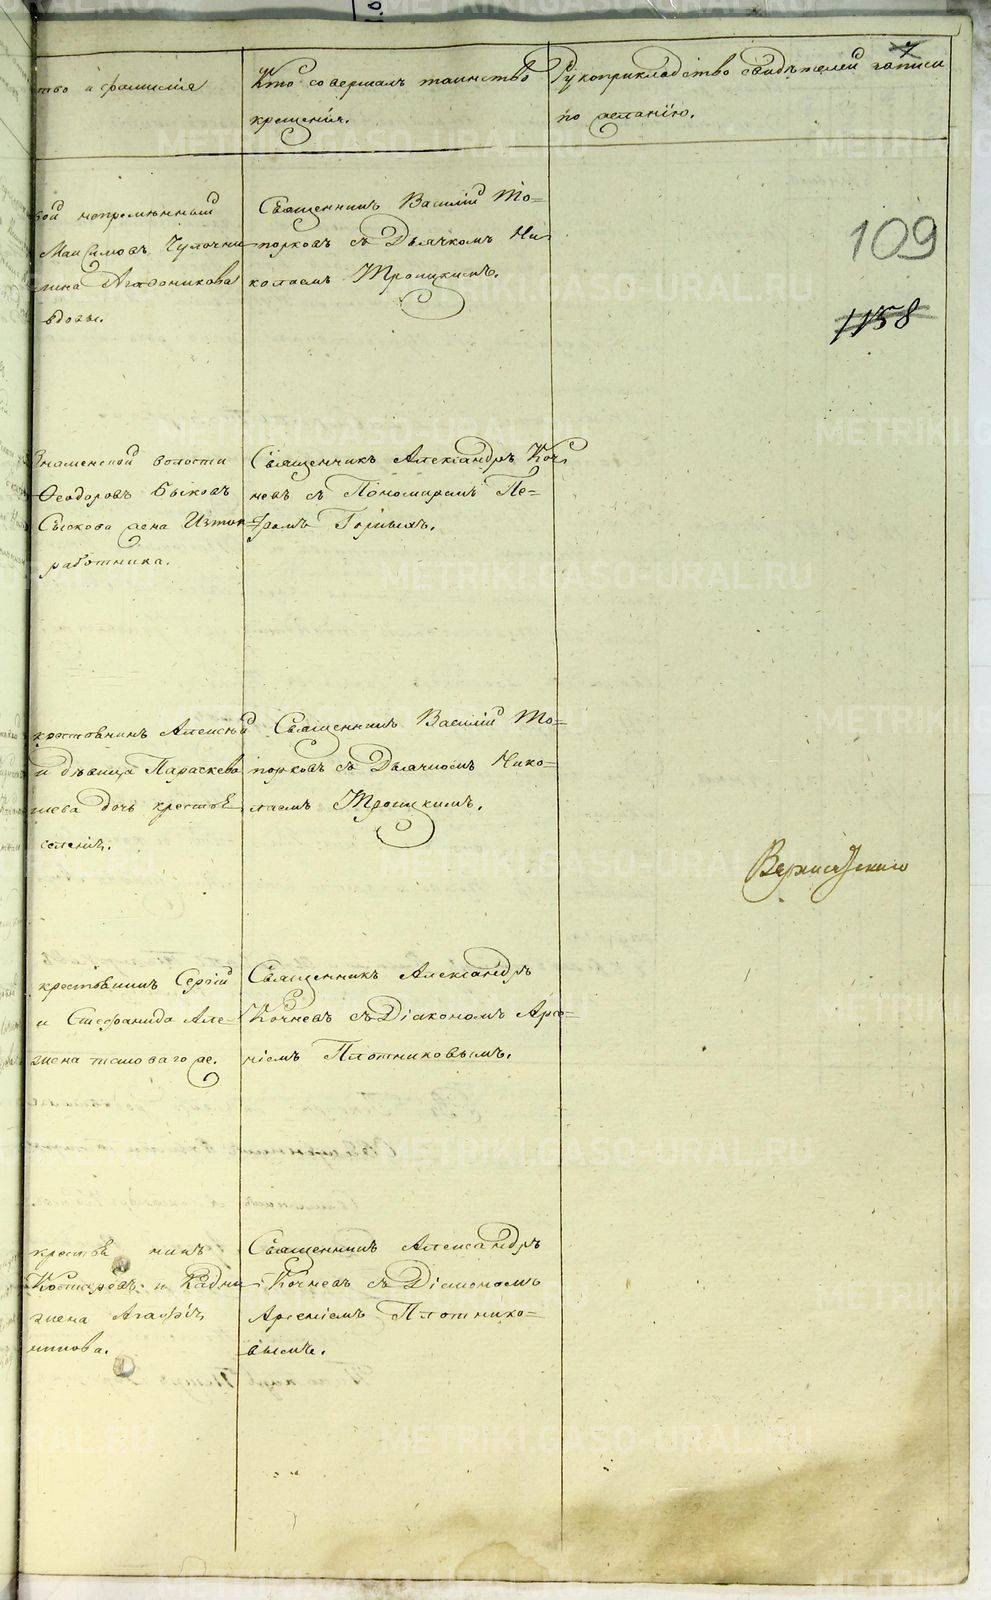 7
тво и фамилiя
Кто совершалъ таинство
крещенiя.
Рукоприкладство свидѣтелей записи
по желанiю.
109
1158
непремѣнный
Максимовъ
жена Агафоникова
вдова.
Священникъ Василiй То-
порковъ съ Дьячкомъ Ни-
колаемъ Троицкимъ.
Знаменской волости
Феодоровъ Быковъ
жена
работника.
Священникъ Александръ Коч-
невъ съ Пономаремъ Пе-
тромъ Горныхъ.
крестьянинъ Алексѣй
и дѣвица Параскева
дочь
селенiя.
Священникъ Василiй То-
порковъ съ Дьячкомъ Нико-
лаемъ Троицкимъ.
крестьянинъ Сергiй
и Стефанида Але-
жена
Священникъ Александръ
Кочневъ съ Дiакономъ Арсе-
нiемъ Плотниковымъ.
Костаревъ и
жена Агафiя
Священникъ Александръ
Кочневъ съ Дiакономъ
Арсенiемъ Плотнико-
вымъ.
METRIKI.GASO-URAL.RU